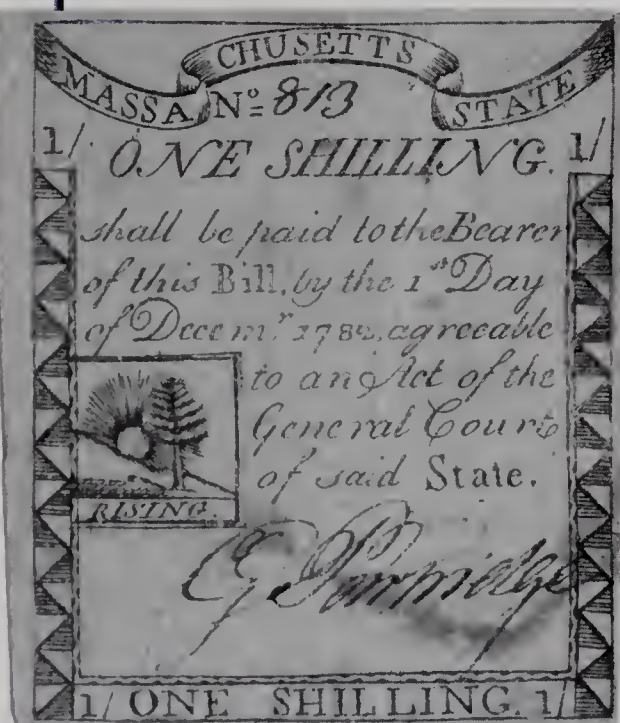 MASSA CHUSETTS STATE
Nº 813
1/ ONE SHILLING. 1/
shall be paid to the Bearer
of this Bill, by the 1st Day
of Decem.r 1782, agreeable
to an Act of the
General Court
of said State.
RISING.
G Partridge
1/ ONE SHILLING. 1/